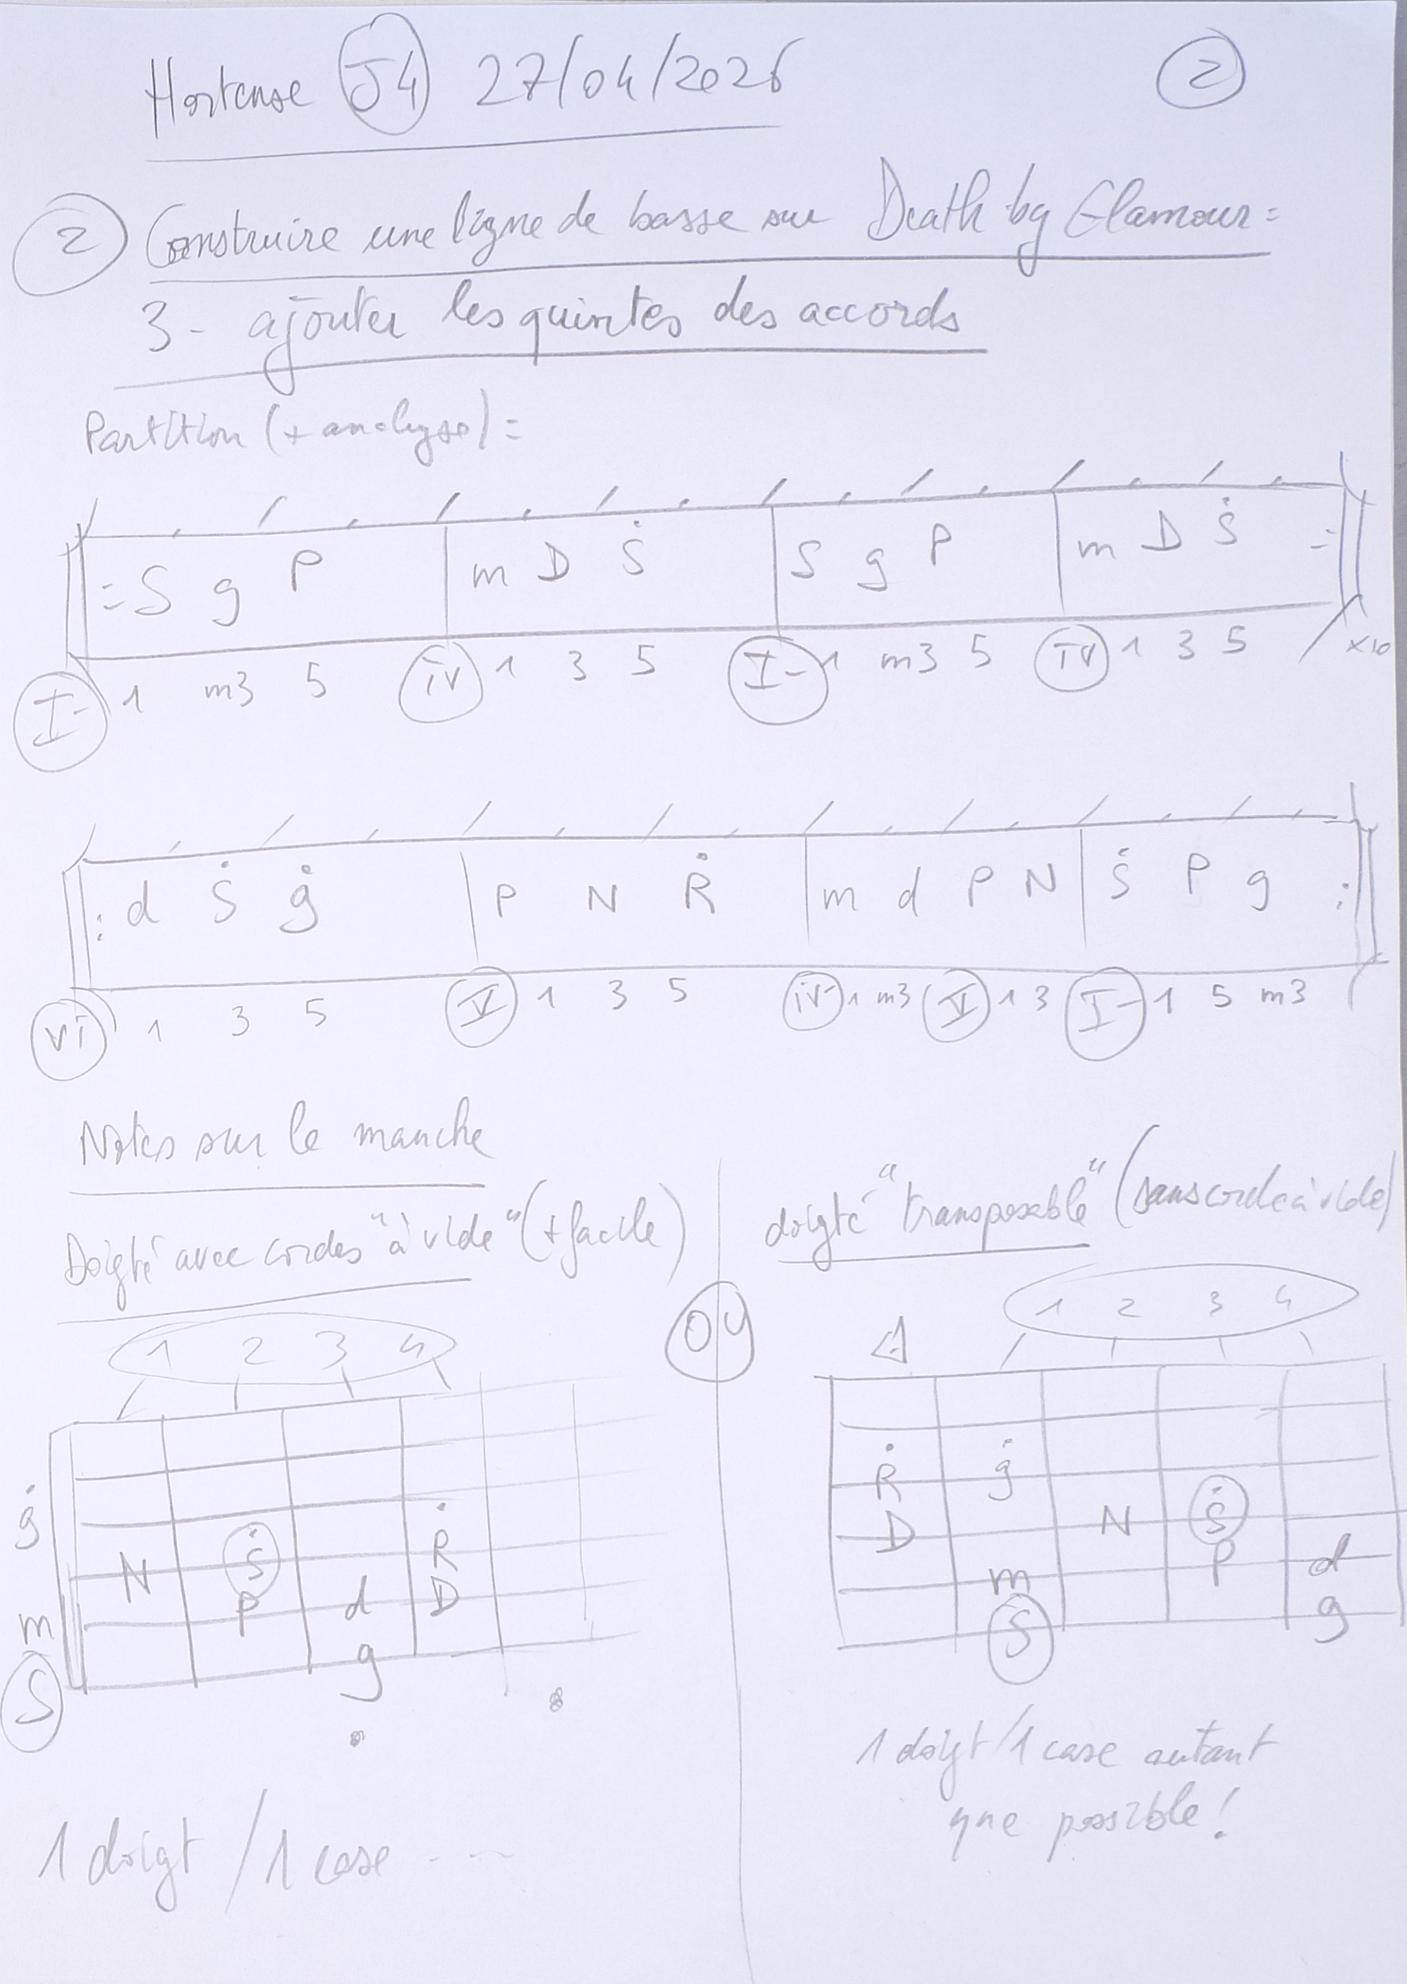 Hortense J4 27/04/2026 2
2 Construire une ligne de basse sur Death by Glamour =
3 - ajouter les quintes des accords
Partition (+ analyse) =
: S g P m D Ṡ S g P m D Ṡ :
I- 1 m3 5 iv 1 3 5 I- 1 m3 5 iv 1 3 5 x10
: d Ṡ ġ P N Ṙ m d P N Ṡ P g :
vi 1 3 5 V 1 3 5 iv- 1 m3 V 1 3 I- 1 5 m3
Notes sur le manche
Doigté avec cordes "à vide" (+ facile)
1 2 3 4
ġ Ṙ
N Ṡ D
m P d
S g
1 doigt / 1 case ...
OU
doigté "transposable" (sans corde à vide)
1 2 3 4
Ṙ ġ
D N Ṡ
m P d
S g
1 doigt / 1 case autant
que possible !